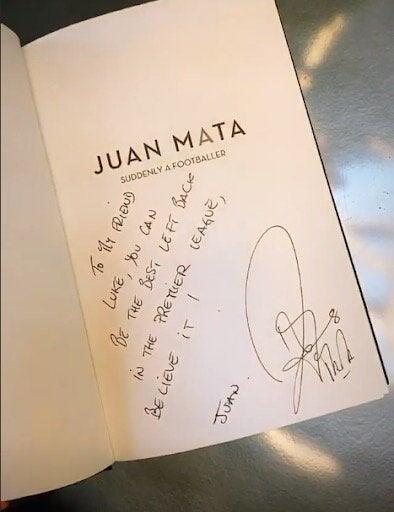 JUAN MATA
SUDDENLY A FOOTBALLER
TO MY FRIEND
LUKE, YOU CAN
BE THE BEST LEFT BACK
IN THE PREMIER LEAGUE,
BELIEVE IT !
JUAN.
8